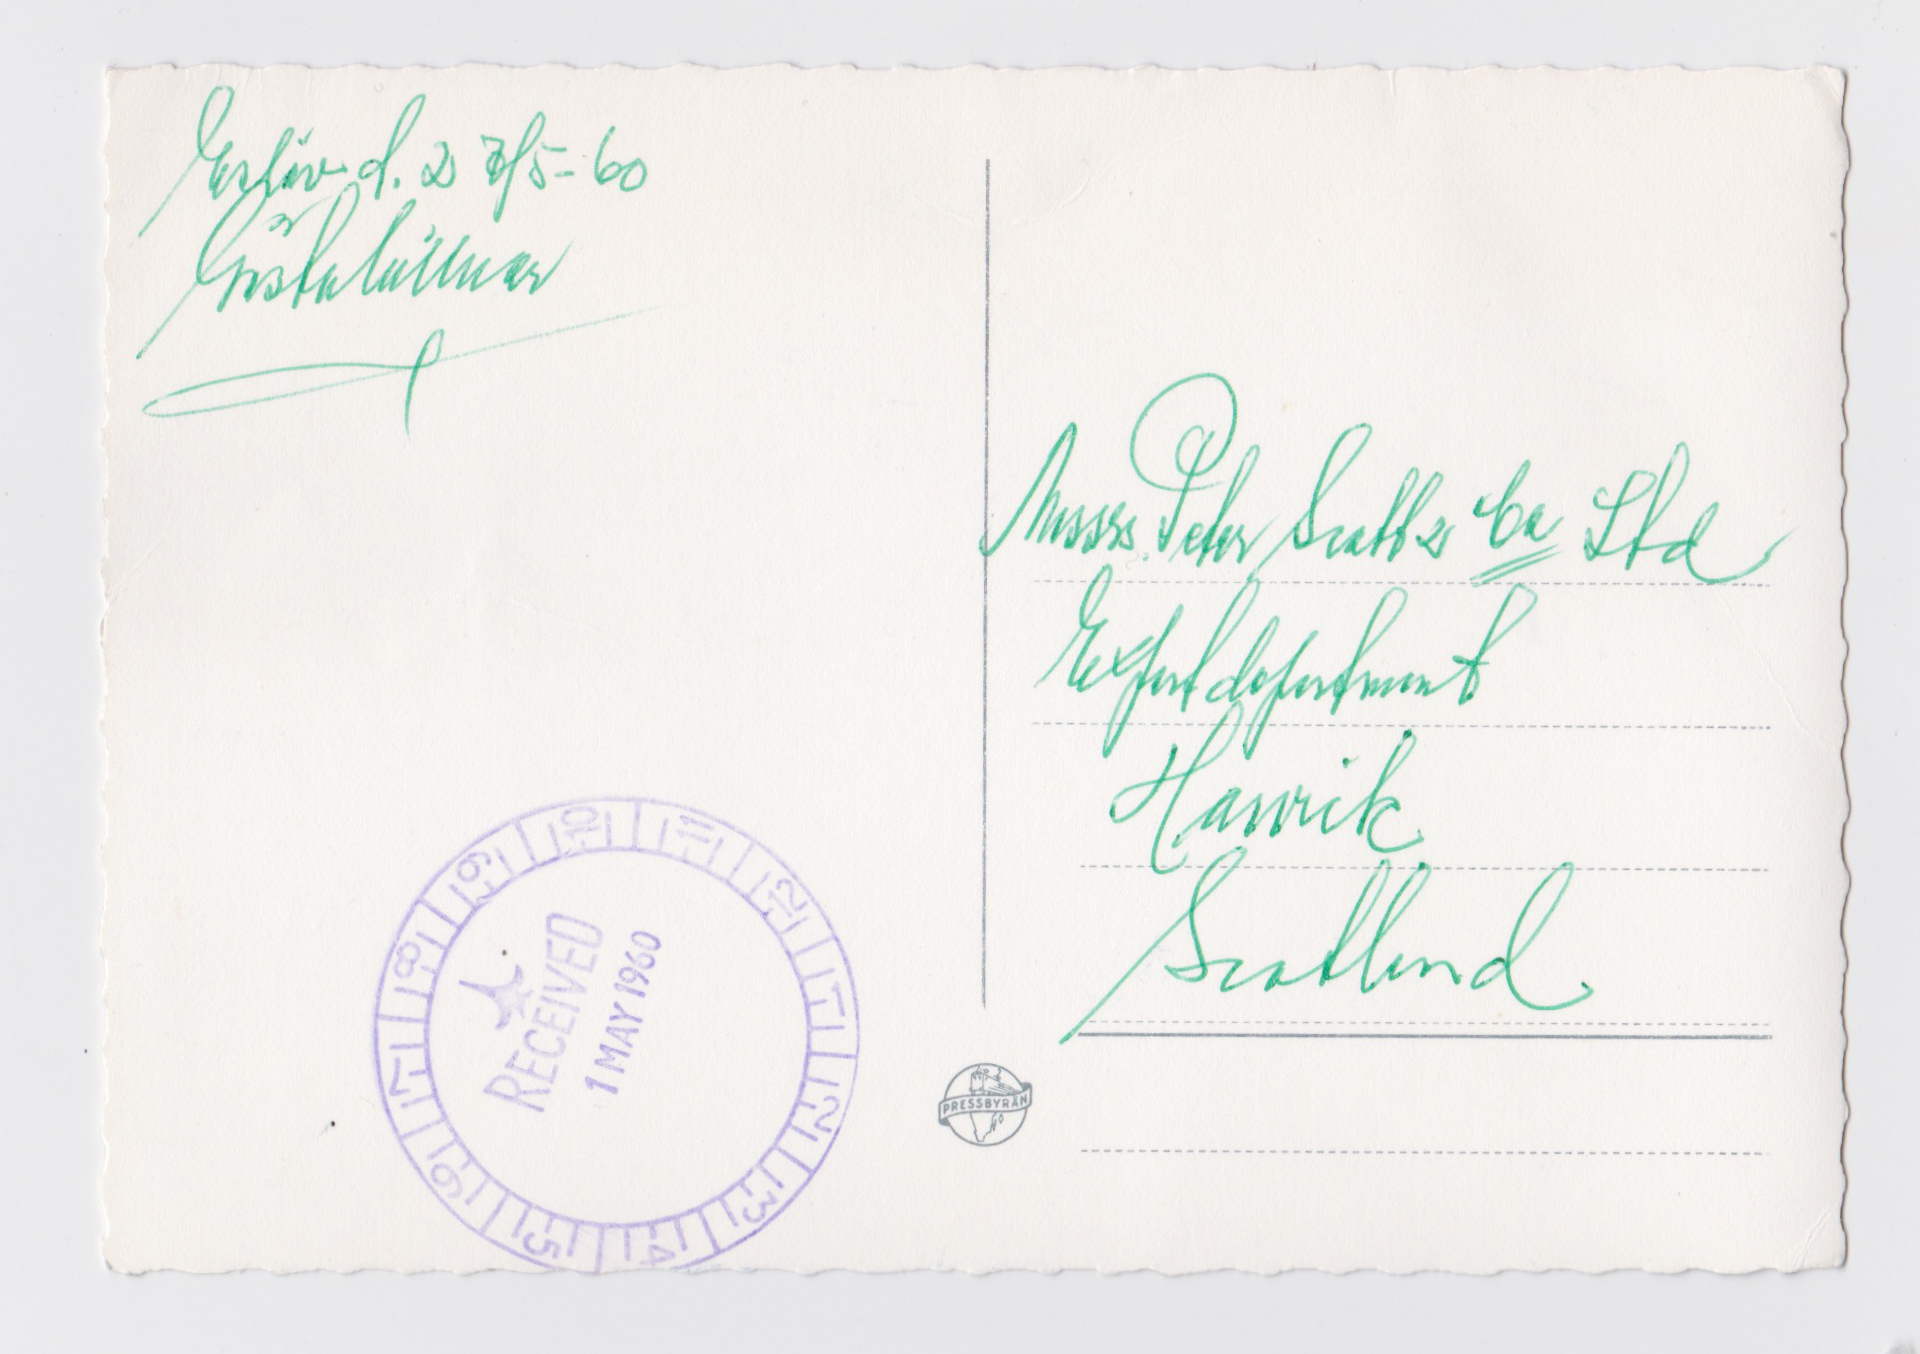 Eslöv d. 2 7/5-60
Gösta Lüttner
Messrs. Peter Scott & Co Ltd
Exportdepartment
Hawick
Scotland.
10 11 12 1 2 3 4 5 6 7 8 9
RECEIVED
1 MAY 1960
PRESSBYRÅN